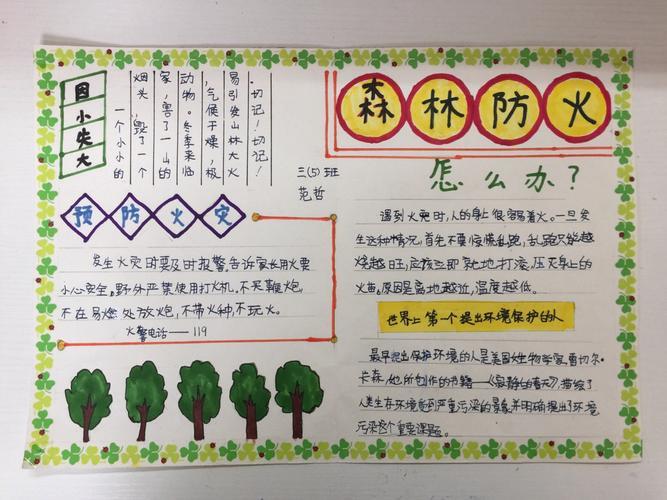 因小失大
一个小小的
烟头，毁了一个
家，害了一山的
动物。冬季来临
，气候干燥，极
易引发山林大火
.切记！切记！
三(5)班
范哲
森林防火
预防火灾
发生火灾时要及时报警,告诉家长用火要
小心安全。野外严禁使用打火机,不买鞭炮,
不在易燃处放炮,不带火种,不玩火。
火警电话——119
怎么办？
遇到火灾时,人的身上很容易着火。一旦发
生这种情况,首先不要惊慌乱跑,乱跑只能越
烧越旺,应该立即就地打滚,压灭身上的
火苗。原因是离地越近,温度越低。
世界上第一个提出环境保护的人
最早提出保护环境的人是美国生物学家雷切尔·
卡森,他所创作的书籍——《寂静的春天》描绘了
人类生存环境受到严重污染的景象,并明确提出了环境
污染这个重要课题。